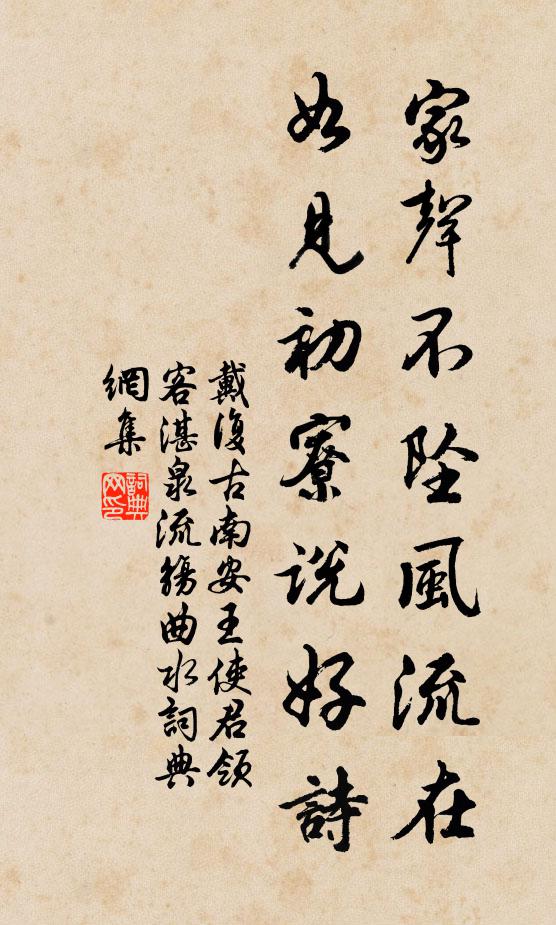 家聲不墜風流在
如見初寮說好詩
戴復古南安王使君領
客湛泉流觴曲水詞典
網集
詞典
网印